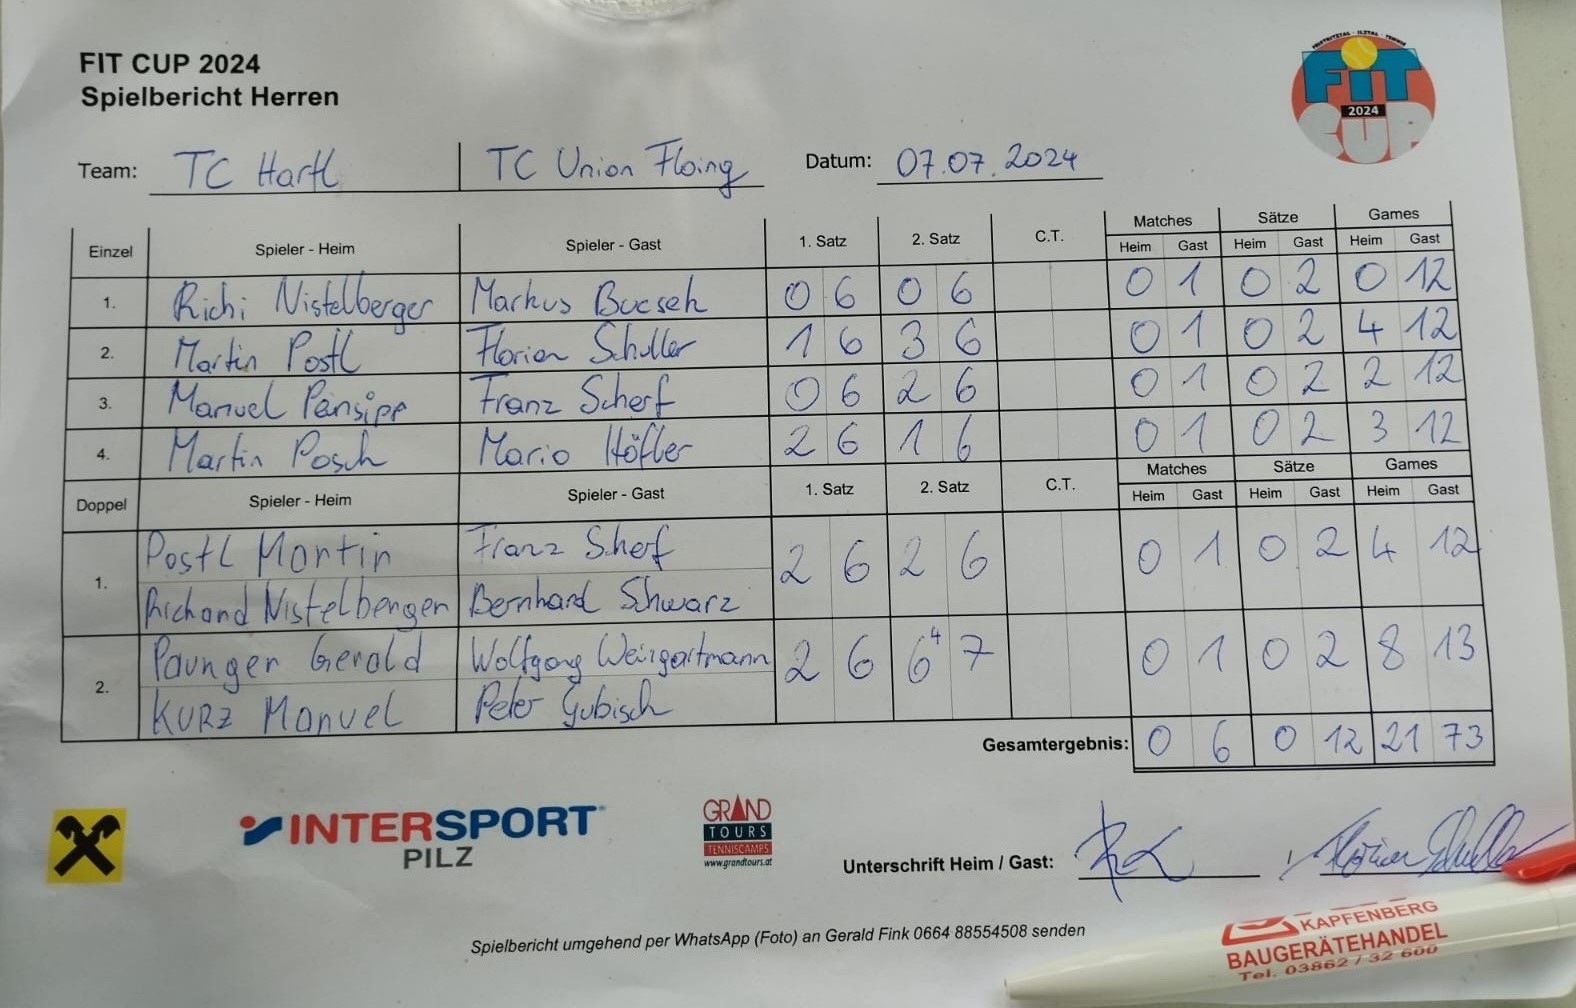 FIT CUP 2024
Spielbericht Herren
FEISTRITZTAL - ILZTAL - TENNIS
FiT
2024
CUP
Team: TC Hartl TC Union Floing Datum: 07.07.2024
Matches Sätze Games
Einzel Spieler - Heim Spieler - Gast 1. Satz 2. Satz C.T. Heim Gast Heim Gast Heim Gast
1. Richi Nistelberger Markus Buesch 0 6 0 6 0 1 0 2 0 12
2. Martin Postl Florian Schuller 1 6 3 6 0 1 0 2 4 12
3. Manuel Pansipp Franz Scherf 0 6 2 6 0 1 0 2 2 12
4. Martin Posch Mario Höfler 2 6 1 6 0 1 0 2 3 12
Matches Sätze Games
Doppel Spieler - Heim Spieler - Gast 1. Satz 2. Satz C.T. Heim Gast Heim Gast Heim Gast
Postl Martin Franz Scherf
1. 2 6 2 6 0 1 0 2 4 12
Richard Nistelberger Bernhard Schwarz
Paunger Gerald Wolfgang Weingartmann
2. 2 6 6 4 7 0 1 0 2 8 13
KURZ Manuel Peter Gubisch
Gesamtergebnis: 0 6 0 12 21 73
INTERSPORT
PILZ
GRAND
TOURS
TENNISCAMPS
www.grandtours.at
Unterschrift Heim / Gast: Florian Schuller
Spielbericht umgehend per WhatsApp (Foto) an Gerald Fink 0664 88554508 senden
KAPFENBERG
BAUGERÄTEHANDEL
Tel. 03862 / 32 600